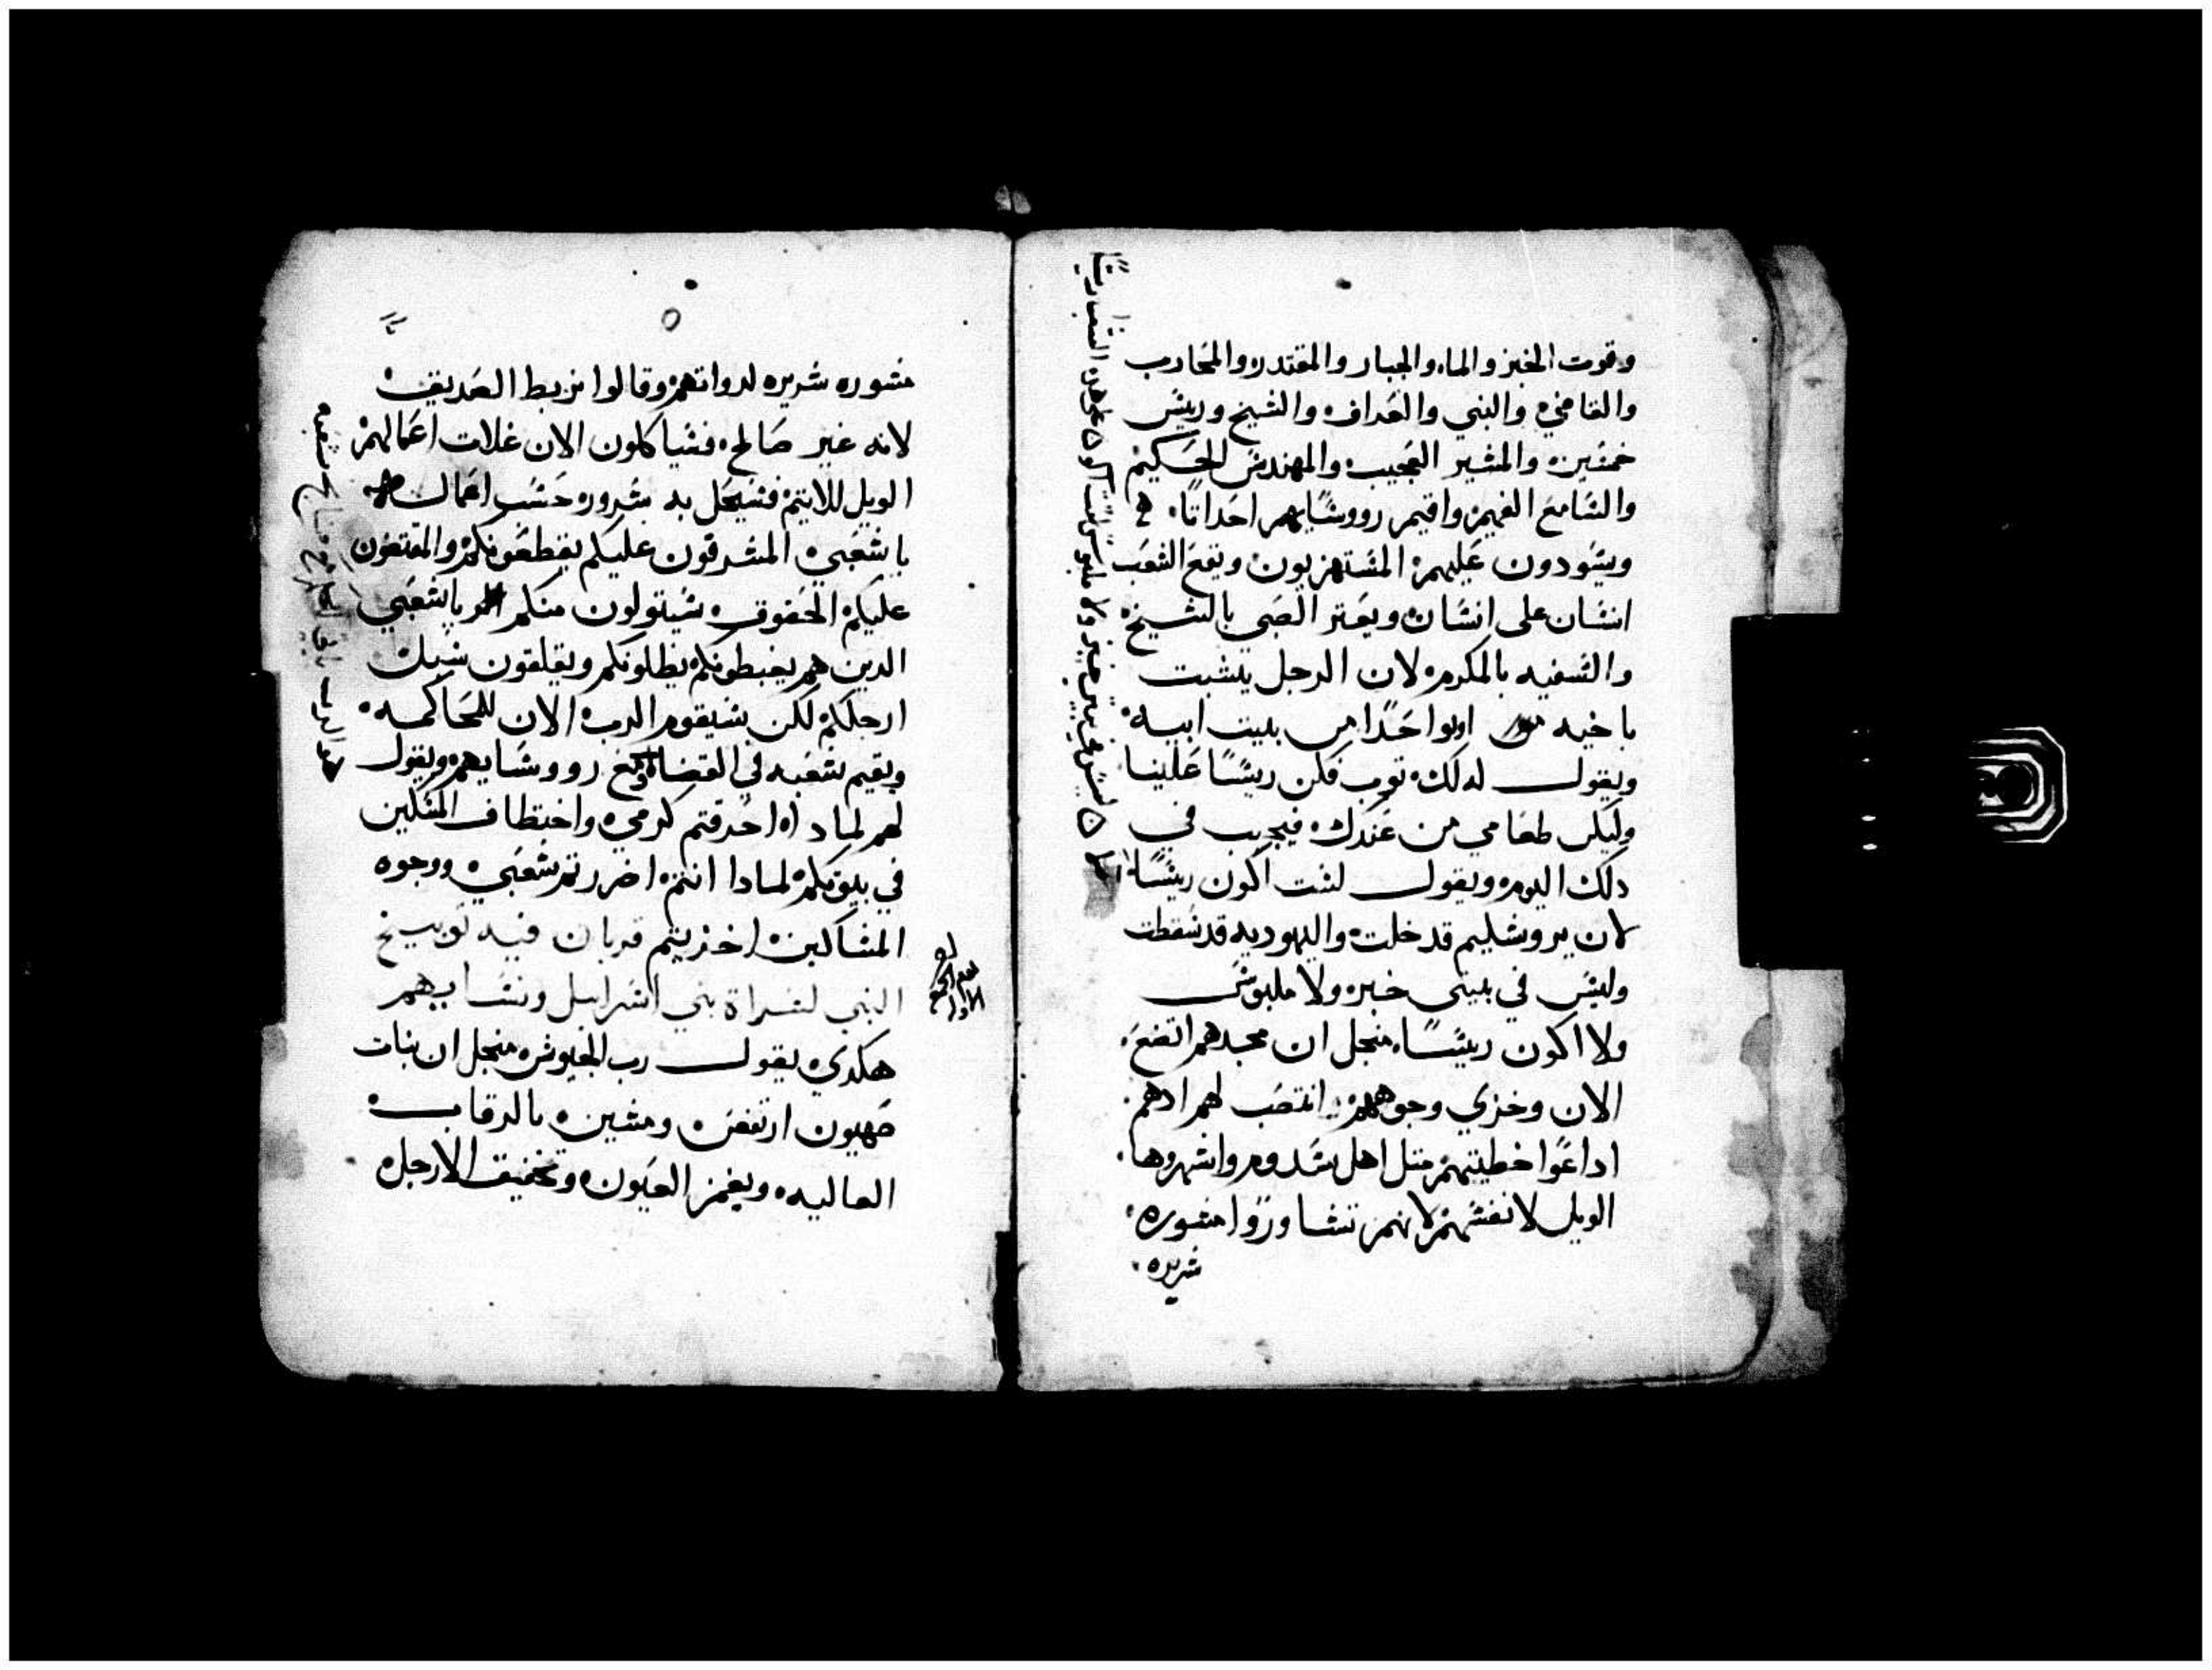 وقوت الخبز والماء والجبار والمقتدر والمحارب
والقاضي والنبي والعراف والشيخ وريس
خمسين والمشير العجيب والمهندس الحكيم
والسامع الفهيم واقيم رووسايهم احداتا
ويسودون عليهم المستهزيون ويقع الشعب
انسان على انسان ويعتر الصبي بالشيخ
والسفيه بالمكرم لان الرجل يتشبت
باخيه اوبواحدا من بيت ابيه
ويقول له لك توب فكن ريسا علينا
وليكن طعامي من عندك فيجيب في
دلك اليوم ويقول لست اكون ريسا
لان يروشليم قد خلت واليهوديه قد سقطت
وليس في بيتي خبز ولا ملبوس
ولا اكون ريسا منجل ان مجدهم اتضع
الان وخزي وجوههم انتصب لهم ادهم
اداعوا خطيتهم متل اهل سدوم واشهروها
الويل لانفسهم لانهم تشاوروا مشوره
شريره
مشوره شريره لدواتهم وقالوا نربط الصديق
لانه غير صالح فسياكلون الان غلات اعمالهم
الويل للاتيم فسيحل به شروره حسب اعمال
يا شعبي المشرقون عليكم يقطعونكم والمقتضون
عليكم الحقوق سيتولون منكم يا شعبي
الدين هم يغبطونكم يظلونكم ويقلقون سبل
ارجلكم لكن سيقوم الرب الان للمحاكمه
ويقيم شعبه في القضا مع رووسايهم ويقول
لهم لمادا احرقتم كرمي واختطاف المسكين
في بيوتكم لمادا انتم اضررتم شعبي ووجوه
المساكين اخزيتم قريان فيه توبيخ
النبي لنسراة بني اسراييل ونسايهم
هكدي يقول رب الجيوش منجل ان بنات
صهيون ارتفعن ومشين بالرقاب
العاليه وبغمز العيون وتخفيف الارجل